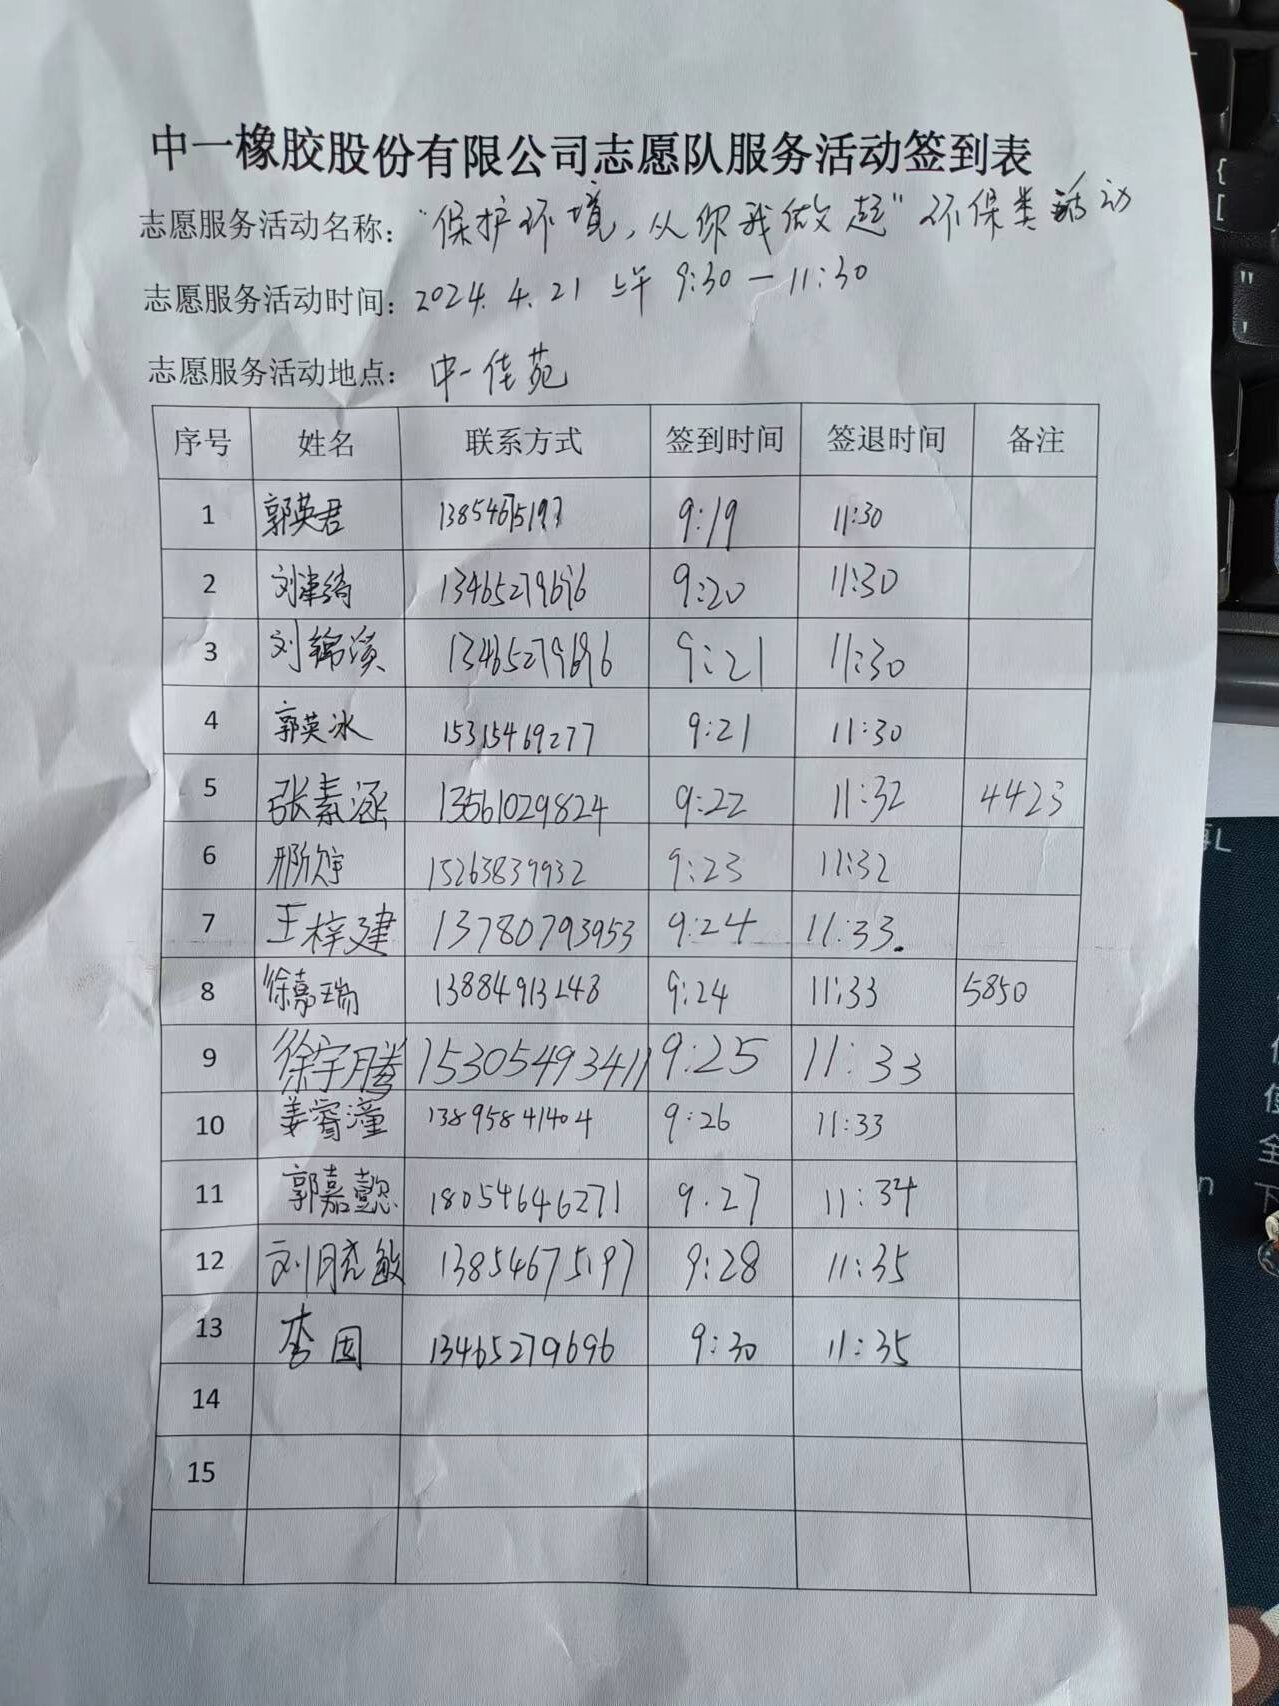 中一橡胶股份有限公司志愿队服务活动签到表
志愿服务活动名称：“保护环境，从你我做起”环保类活动
志愿服务活动时间：2024.4.21 上午 9:30－11:30
志愿服务活动地点：中一佳苑
序号 姓名 联系方式 签到时间 签退时间 备注
1 郭英君 13854675197 9:19 11:30
2 13465279696 9:20 11:30
3 刘锦滨 13465279696 9:21 11:30
4 郭英冰 15315469277 9:21 11:30
5 张素涵 13561029824 9:22 11:32 4423
6 15263839932 9:23 11:32
7 王梓建 13780793953 9:24 11:33.
8 徐嘉瑞 13884913248 9:24 11:33 5850
9 徐宇腾 15305493411 9:25 11:33
10 姜睿潼 13895841404 9:26 11:33
11 郭嘉懿 18054646271 9.27 11:34
12 刘晓敏 13854675197 9:28 11:35
13 李国 13465279696 9:30 11:35
14
15